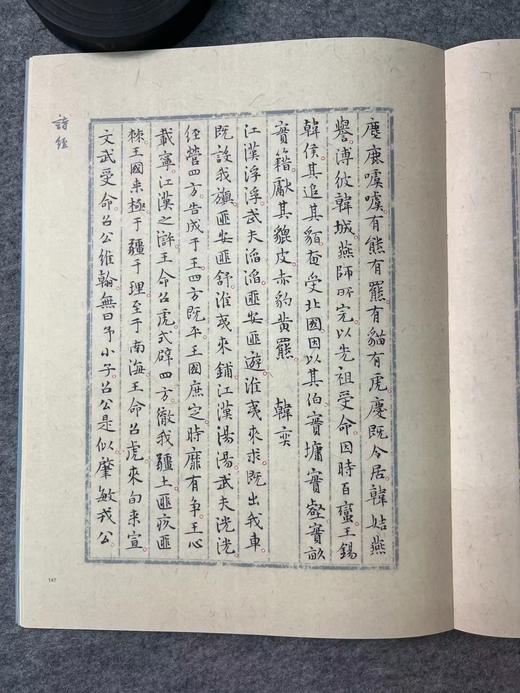 麀鹿噳噳有熊有羆有貓有虎慶既令居韓姞燕
譽溥彼韓城燕師所完以先祖受命因時百蠻王錫
韓侯其追其貊奄受北國因以其伯實墉實壑實畝
實籍獻其貔皮赤豹黃羆 韓奕
江漢浮浮武夫滔滔匪安匪遊淮夷來求既出我車
既設我旟匪安匪舒淮夷來鋪江漢湯湯武夫洸洸
經營四方告成于王四方既平王國庶定時靡有爭王心
載寧江漢之滸王命召虎式辟四方徹我疆土匪疚匪
棘王國来極于疆于理至于南海王命召虎來旬来宣
文武受命召公維翰無曰予小子召公是似肇敏戎公
詩經
147